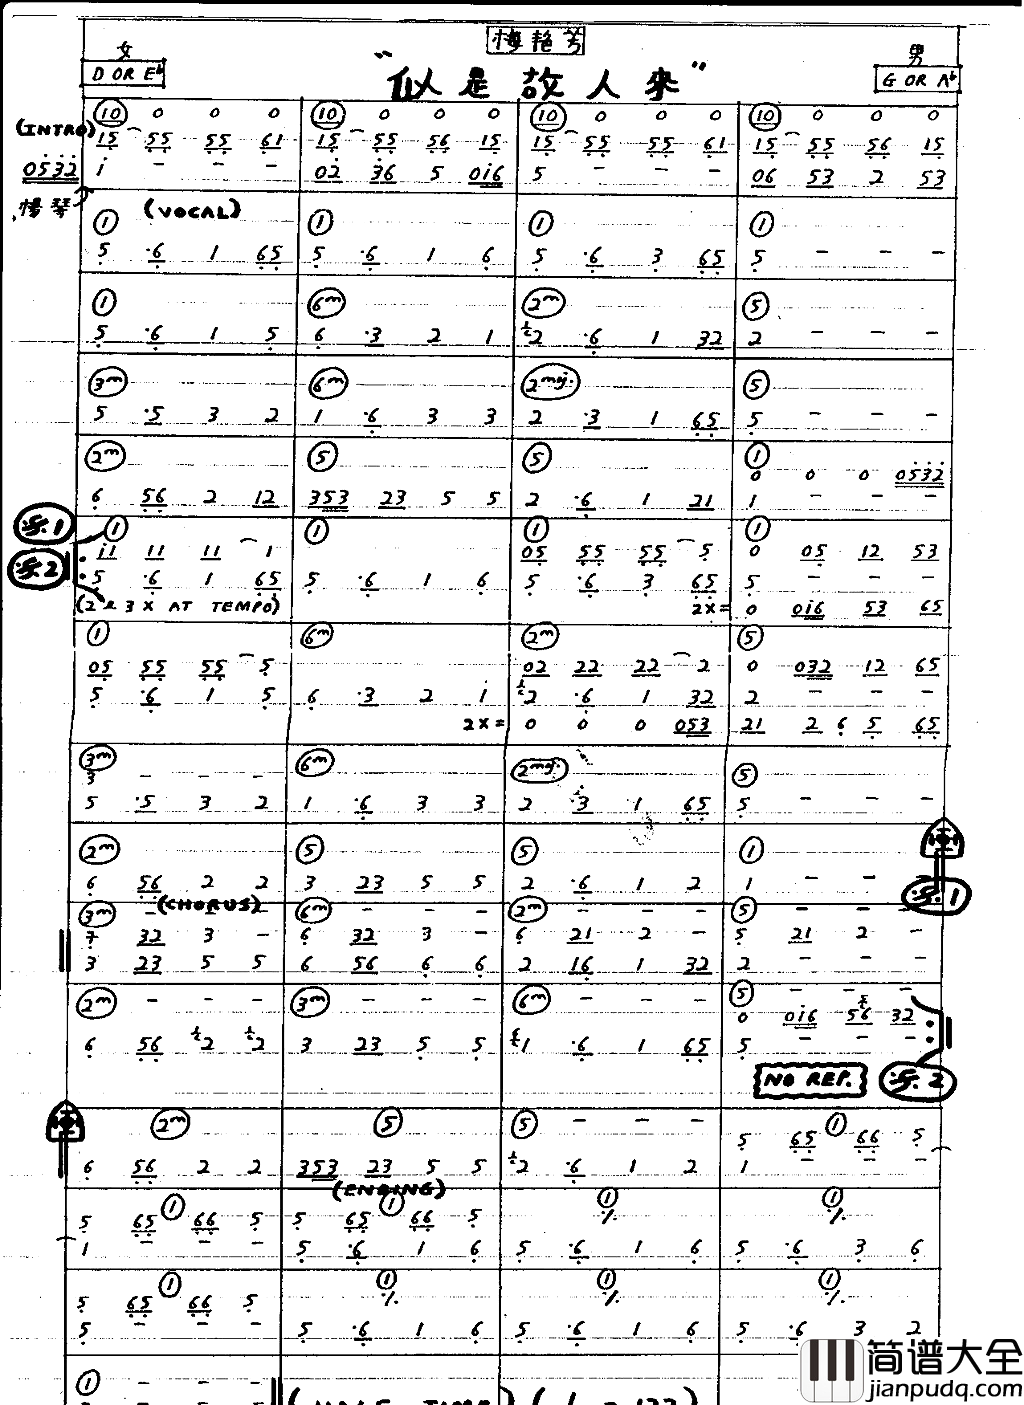 梅艳芳
女
男
"似是故人來"
D OR Eb
G OR Ab
(INTRO)
⑩ 0 0 0 ⑩ 0 0 0 ⑩ 0 0 0 ⑩ 0 0 0
15 55 55 61 15 55 56 15 15 55 55 61 15 55 56 15
0532 i - - - 02 36 5 0i6 5 - - - 06 53 2 53
揚琴
(VOCAL)
① ① ① ①
5 ·6 1 65 5 ·6 1 6 5 ·6 3 65 5 - - -
① 6m 2m ⑤
5 ·6 1 5 6 ·3 2 1 2 ·6 1 32 2 - - -
3m 6m 2maj. ⑤
5 ·5 3 2 1 ·6 3 3 2 ·3 1 65 5 - - -
2m ⑤ ⑤ ①
0 0 0 0532
6 56 2 12 353 23 5 5 2 ·6 1 21 1 - - -
① ① ① ①
i1 11 11 1 05 55 55 5 0 05 12 53
5 ·6 1 65 5 ·6 1 6 5 ·6 3 65 5 - - -
(2 & 3 X AT TEMPO) 2X= 0 0i6 53 65
① 6m 2m ⑤
05 55 55 5 02 22 22 2 0 032 12 65
5 ·6 1 5 6 ·3 2 i 2 ·6 1 32 2 - - -
2X= 0 0 0 053 21 2 6 5 65
3m 6m 2maj. ⑤
3 - - -
5 ·5 3 2 1 ·6 3 3 2 ·3 1 65 5 - - -
2m ⑤ ⑤ ①
6 56 2 2 3 23 5 5 2 ·6 1 2 1 - - -
(CHORUS)
3m - - - 6m - - - 2m - - - ⑤ - - -
7 32 3 - 6 32 3 - 6 21 2 - 5 21 2 -
3 23 5 5 6 56 6 6 2 16 1 32 2 - - -
2m - - - 3m - - - 6m - - - ⑤ - - -
0 0i6 56 32
6 56 2 2 3 23 5 5 1 ·6 1 65 5 - - -
NO REP.
2m ⑤ ⑤ - - - ①
5 65 66 5
6 56 2 2 353 23 5 5 2 ·6 1 2 1 - - -
(ENDING)
① ① ① ①
5 65 66 5 5 65 66 5 ٪ ٪
1 - - - 5 ·6 1 6 5 ·6 1 6 5 ·6 3 6
① ① ① ①
5 65 66 5 ٪ ٪ ٪
5 - - - 5 ·6 1 6 5 ·6 1 6 5 ·6 3 2
① - - -
简谱大全
jianpudq.com